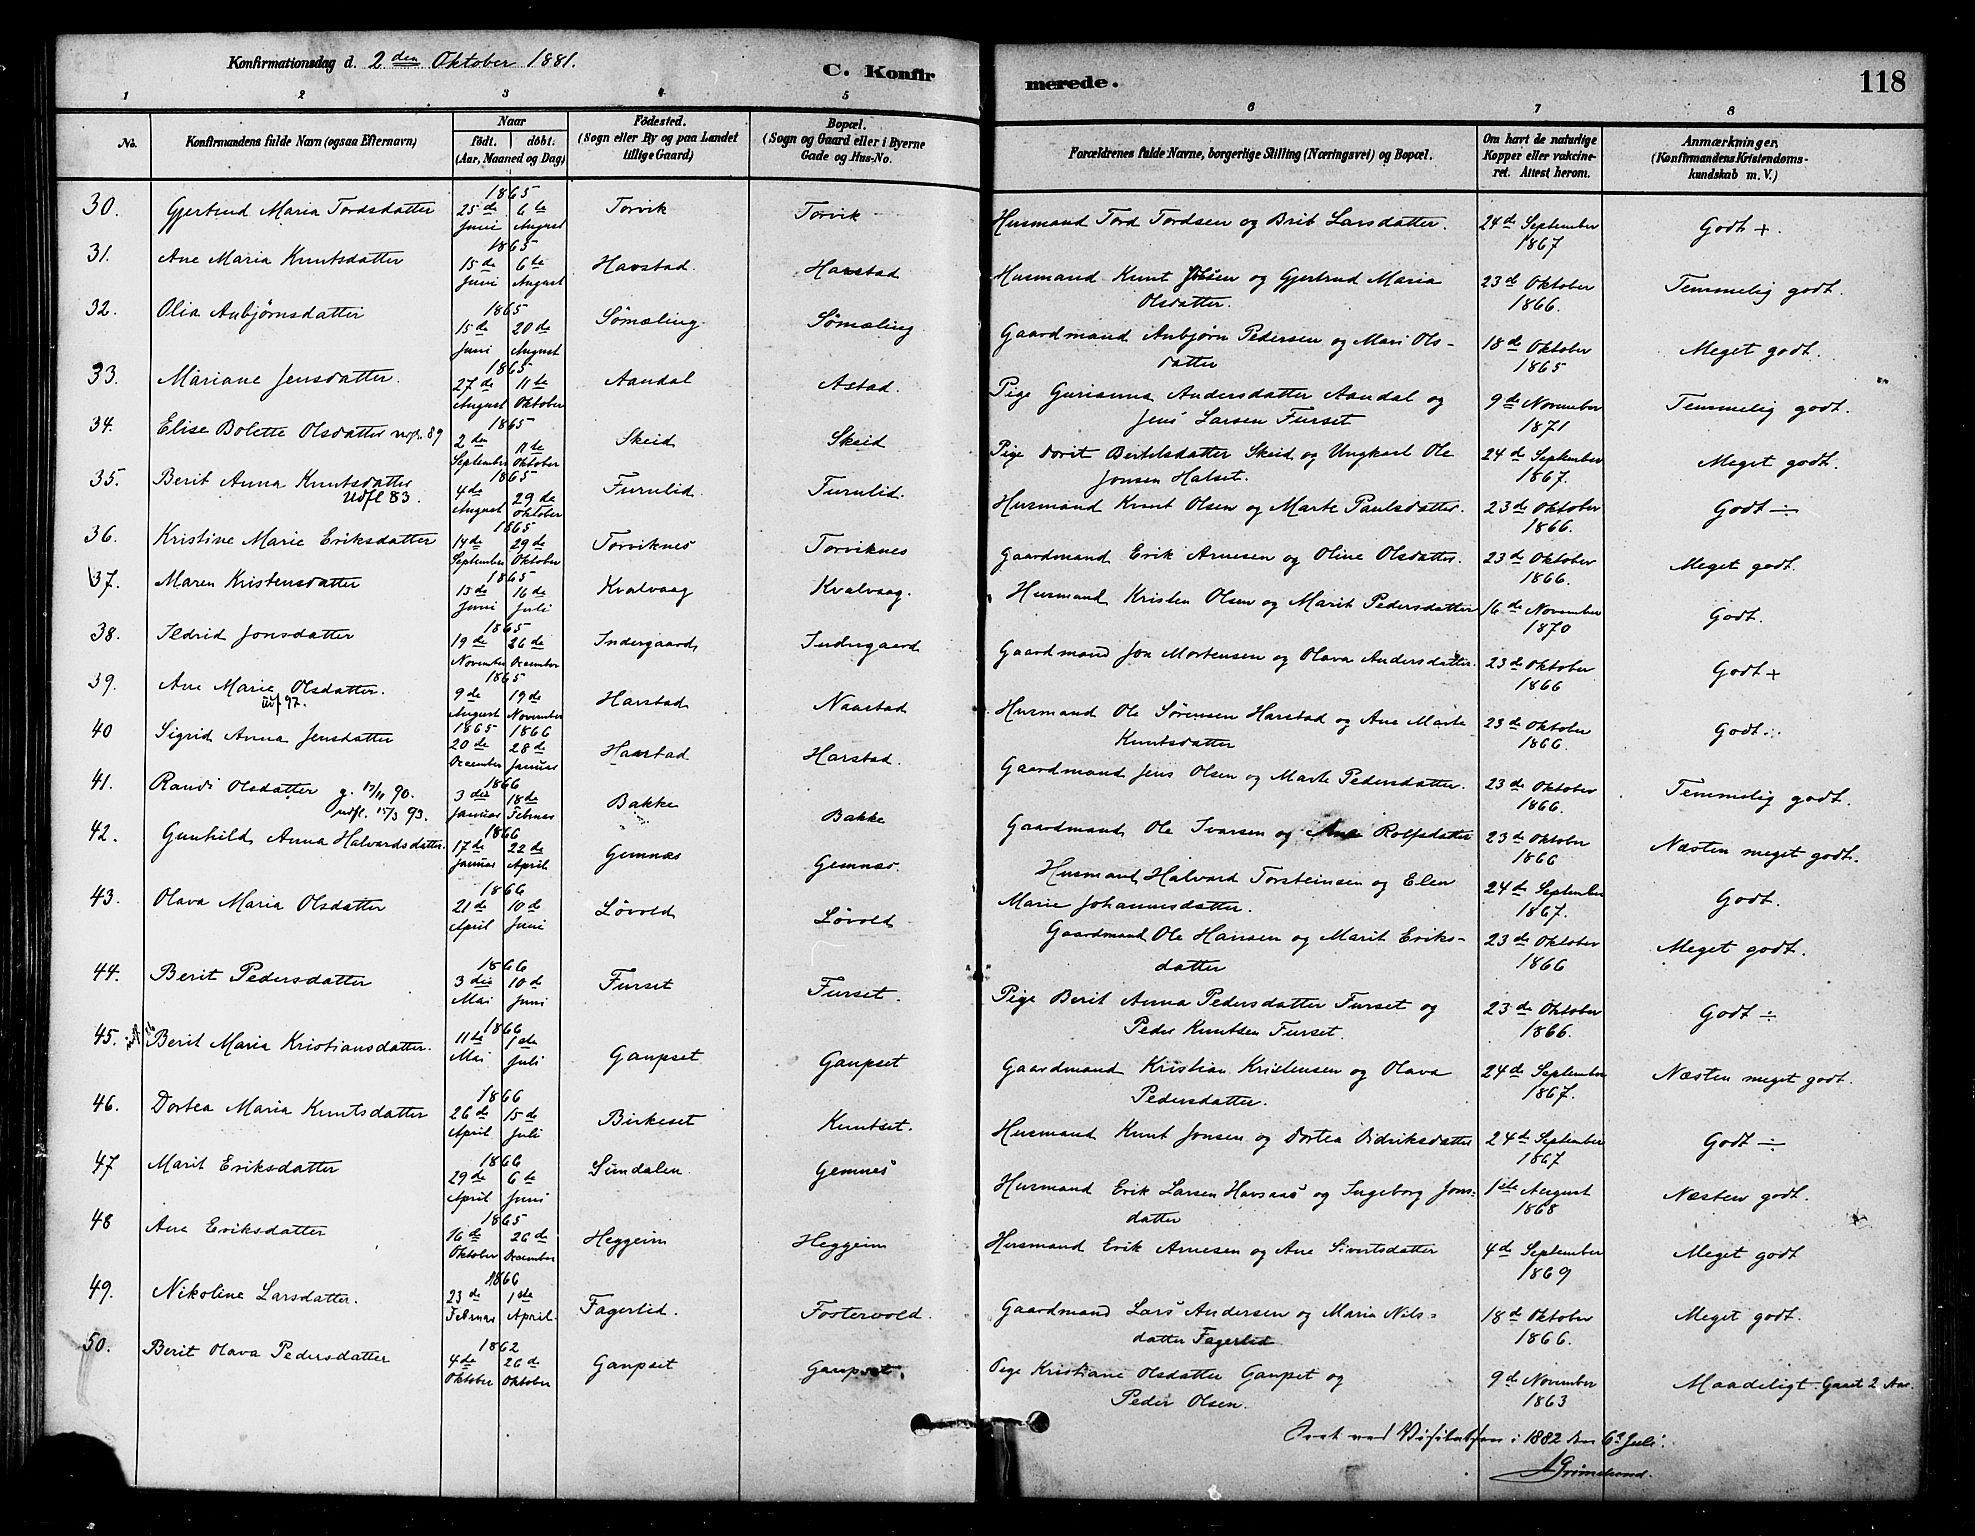 Konfirmationsdag d. 2den Oktober 1881.
C. Konfirmerede.
118
1 2 3 4 5 6 7 8
No. Konfirmandens fulde Navn (ogsaa Efternavn) Naar födt. döbt. (Aar, Maaned og Dag) Födested. (Sogn eller By og paa Landet tillige Gaard) Bopæl. (Sogn og Gaard eller i Byerne Gade og Hus-No. Forældrenes fulde Navne, borgerlige Stilling (Næringsvei) og Bopæl. Om havt de naturlige Kopper eller vakcineret. Attest herom. Anmærkninger. (Konfirmandens Kristendomskundskab m. V.)
30. Gjertrud Maria Tordsdatter 1865 25de Juni 6te August Torvik Torvik Husmand Tord Tordsen og Brit Larsdatter. 24de September 1867 Godt +.
31. Ane Maria Knutsdatter 1865 15de Juni 6te August Havstad Harstad Husmand Knut Olsen og Gjertrud Maria Olsdatter. 23de Oktober 1866. Temmelig godt.
32. Olia Anbjørnsdatter 1865 15de Juni 20de August Sømæling Sømæling Gaardmand Anbjørn Pedersen og Mari Olsdatter 18de Oktober 1865 Meget godt.
33. Mariane Jensdatter. 1865 27de August 11te Oktober Aandal Astad. Pige Gurianna Andersdatter Aandal og Jens Larsen Furset 9de November 1871 Temmelig godt.
34. Elise Bolette Olsdatter udfl. 89 1865 2den September 11te Oktober Skeid Skeid Pige Dorit Bertelsdatter Skeid og Ungkarl Ole Jonsen Halset. 24de September 1867. Meget godt.
35. Berit Anna Knutsdatter Udfl 83. 1865 4de August 29de Oktober Furulid. Furulid. Husmand Knut Olsen og Marte Paulsdatter. 23de Oktober 1866. Godt ÷
36. Kristine Marie Eriksdatter 1865 14de September 29de Oktober Torviknes Torviknes Gaardmand Erik Arnesen og Oline Olsdatter. 23de Oktober 1866. Meget godt.
37. Maren Kristensdatter 1865 13de Juni 16de Juli Kvalvaag Kvalvaag. Husmand Kristen Olsen og Marit Pedersdatter 16de November 1870 Godt.
38. Ildrid Jonsdatter 1865 19de November 26de December Indergaard Indergaard Gaardmand Jon Mortensen og Olava Andersdatter. 23de Oktober 1866 Godt +
39. Ane Marie Olsdatter. udf 97. 1865 9de August 19de November Harstad Naastad Husmand Ole Sørensen Harstad og Ane Marte Knutsdatter 23de Oktober 1866. Godt.
40 Sigrid Anna Jensdatter 1865 20de December 1866 28de Januar Harstad Harstad. Gaardmand Jens Olsen og Marte Pedersdatter. 23de Oktober 1866. Temmelig godt.
41. Randi Olsdatter g. 17/11 90. udfl. 15/3 93. 1866 3die Januar 18de Februar Bakke Bakke Gaardmand Ole Ivarsen og Ane Rolfsdatter 23de Oktober 1866 Næsten meget godt.
42. Gunhild Anna Halvardsdatter. 1866 17de Januar 22de April Gemnæs Gemnæs. Husmand Halvard Torsteinsen og Elen Marie Johannesdatter. 24de September 1867. Godt.
43. Olava Maria Olsdatter 1866 21de April 10de Juni Løvold Løvold Gaardmand Ole Hansen og Marit Eriksdatter 23de Oktober 1866 Meget godt.
44. Berit Pedersdatter 1866 3die Mai 10de Juni Furset Furset. Pige Berit Anna Pedersdatter Furset og Peder Knutsen Furset. 23de Oktober 1866. Godt ÷
45. Berit Maria Kristiansdatter. 1866 11te Mai 1ste Juli Gaupset Gaupset Gaardmand Kristian Kristensen og Olava Pedersdatter. 24de September 1867. Næsten meget godt.
46. Dortea Maria Knutsdatter 1866 26de April 15de Juli Birkeset Knutset. Husmand Knut Jonsen og Dortea Didriksdatter 24de September 1867 Godt ÷
47 Marit Eriksdatter 1866 29de April 6te Juni Sundalen. Gemnes Husmand Erik Larsen Havsaas og Ingeborg Jonsdatter 1ste August 1868 Næsten godt.
48 Ane Eriksdatter 1865 16de Oktober 26de December Heggeim Heggeim Husmand Erik Arnesen og Ane Sivertsdatter 4de September 1869 Meget godt
49. Nikoline Larsdatter. 1866 23de Februar 1ste April. Fagerlid. Fostervold. Gaardmand Lars Andersen og Maria Nilsdatter Fagerlid 18de Oktober 1866. Meget godt.
50. Berit Olava Pedersdatter 1862 4de Oktober 26de Oktober Gaupset Gaupset Pige Kristiane Olsdatter Gaupset og Peder Olsen. 9de November 1863 Maadeligt. Gaaet 2 Aar.
ved Visitatsen i 1882 den 6te Juli.
Grimelund.